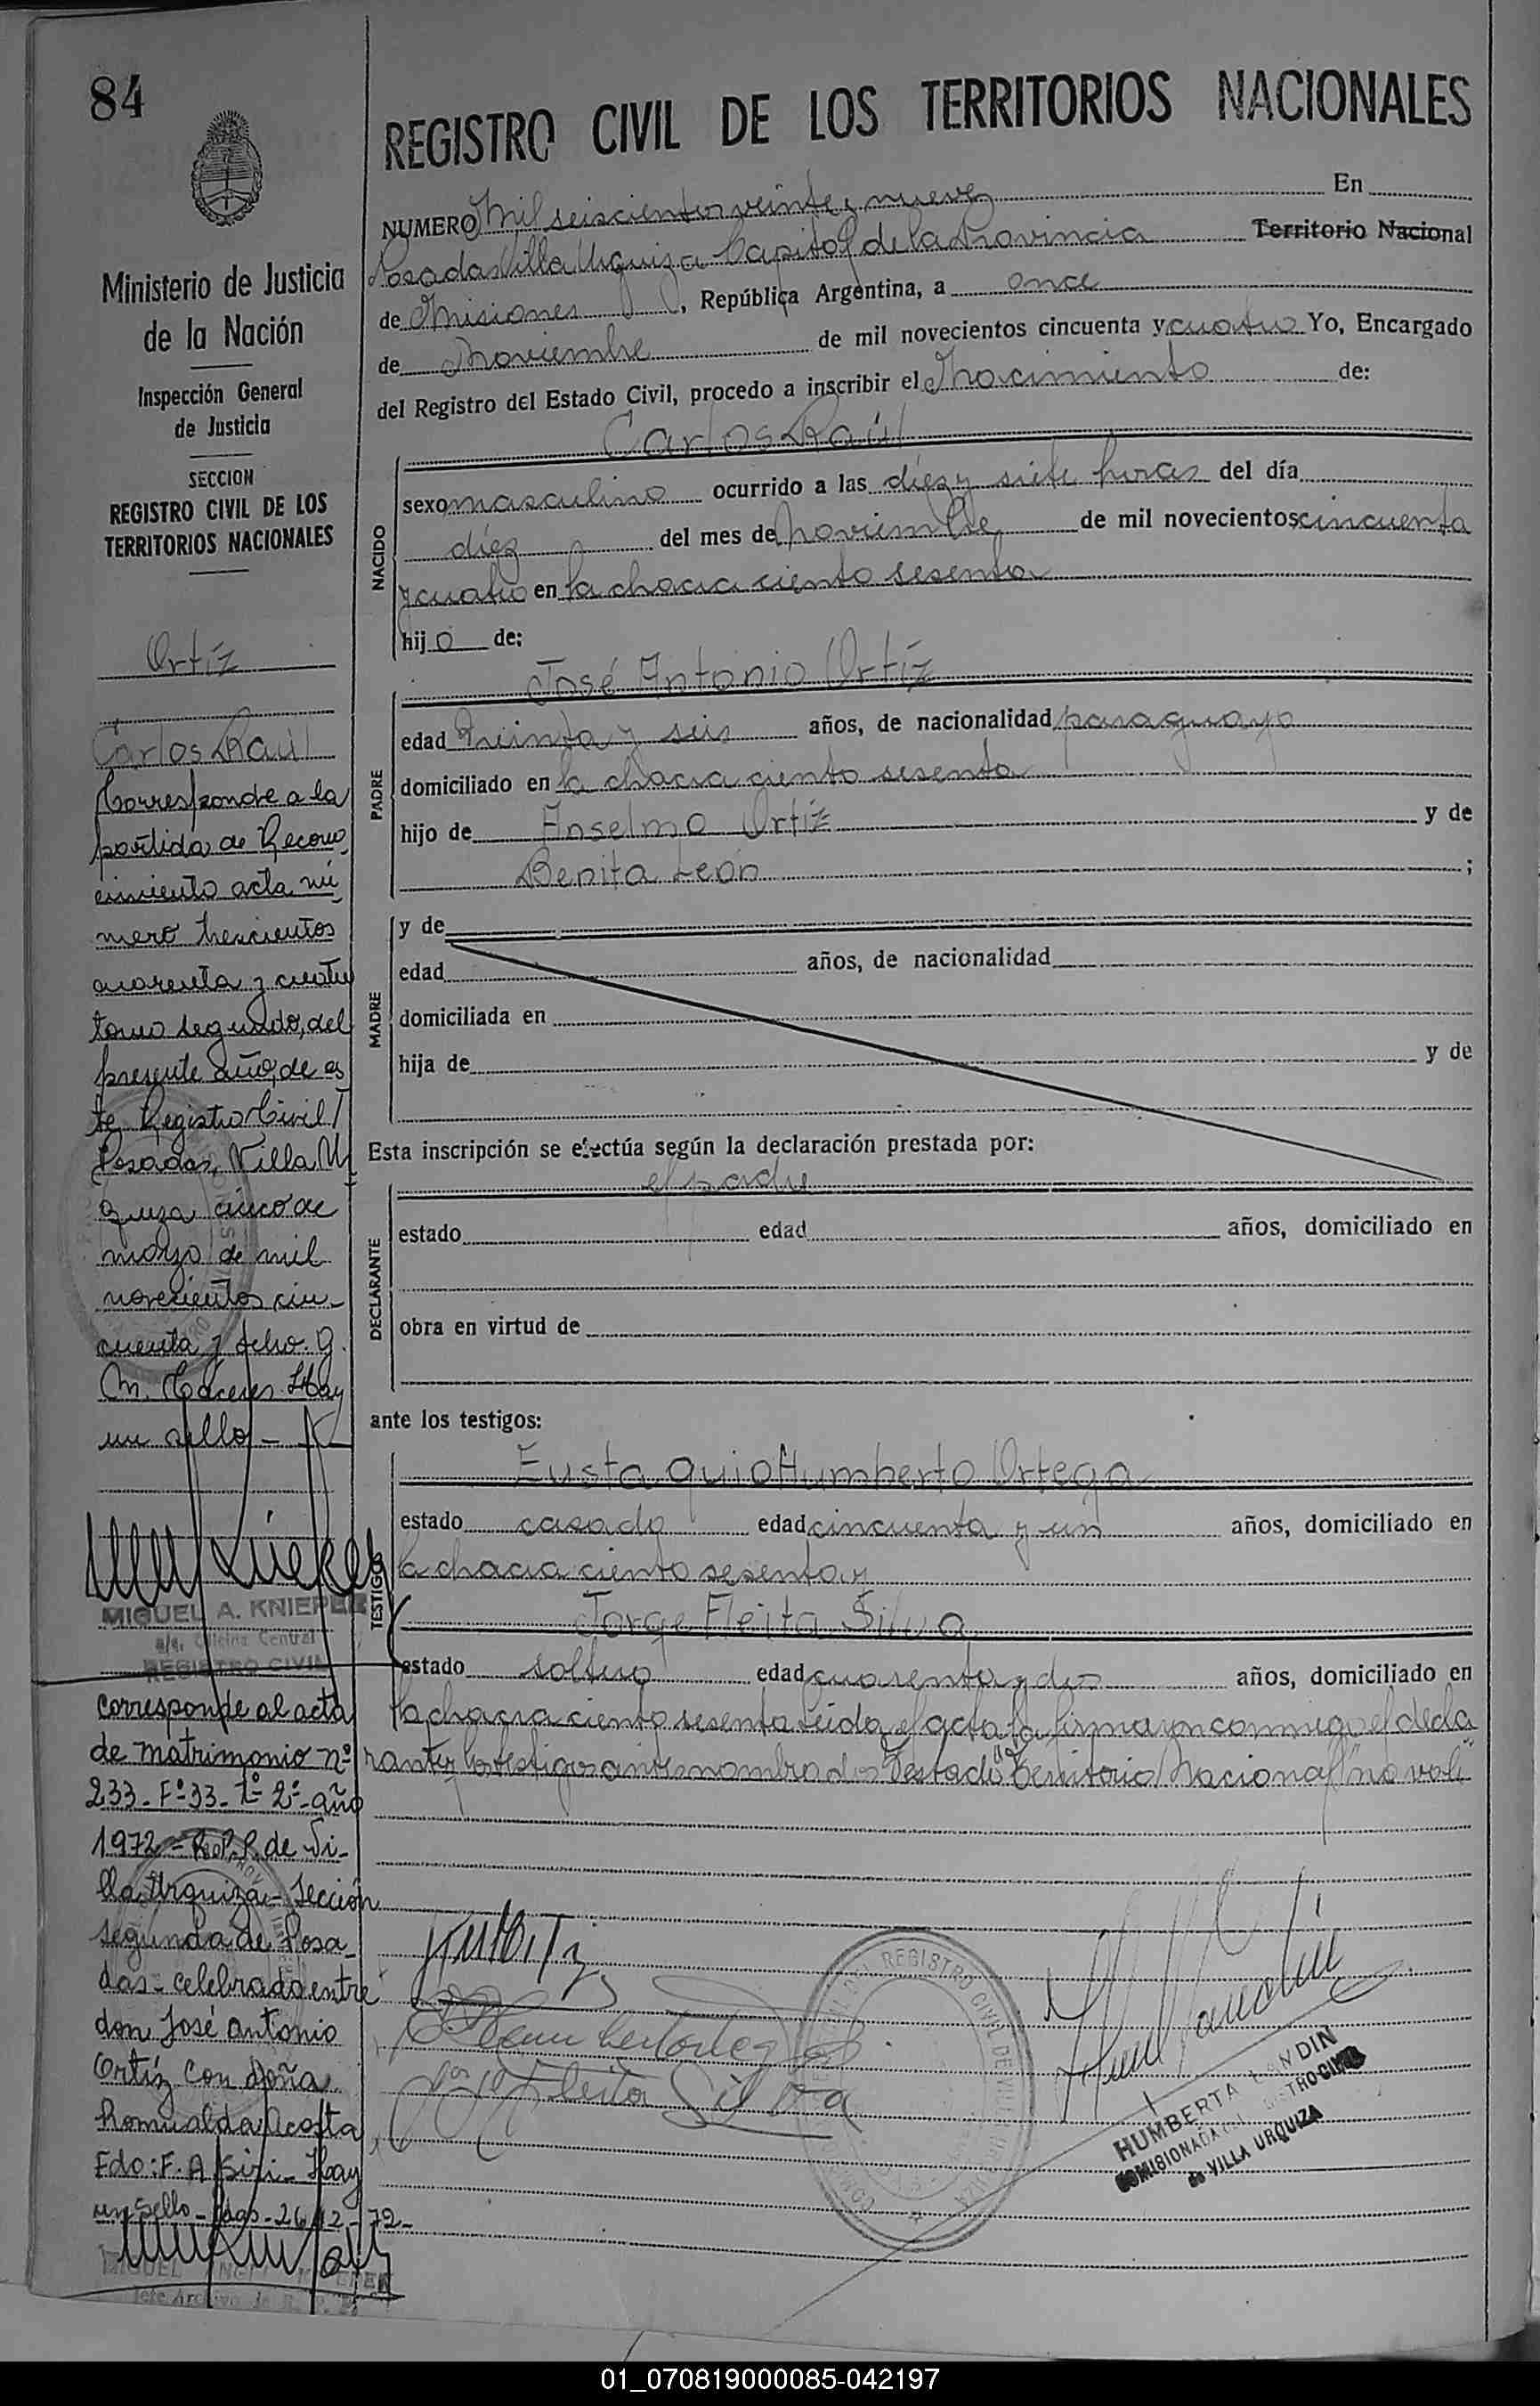 84
Ministerio de Justicia
de la Nación
Inspección General
de Justicia
SECCION
REGISTRO CIVIL DE LOS
TERRITORIOS NACIONALES
Ortíz
Carlos Raúl
Corresponde a la
partida de Recono
cimiento acta nú
mero trescientos
cuarenta y cuatro
tomo segundo, del
presente año, de es
te Registro Civil
Posadas, Villa Ur
quiza cinco de
marzo de mil
novecientos cin-
cuenta y ocho. G.
M. Cáceres. Hay
un sello -
MIGUEL A. KNIEPER
Oficina Central
REGISTRO CIVIL
corresponde al acta
de matrimonio nº
233 - Fº 33 - Tº 2º - año
1972 - R.P.P. de Vi-
lla Urquiza - Sección
segunda de Posa-
das - celebrado entre
don José Antonio
Ortíz con doña
Romualda Acosta
Fdo: F. A. Siri - Hay
un sello - Pdas - 26-12-72 -
REGISTRO CIVIL DE LOS TERRITORIOS NACIONALES
NUMERO Mil seiscientos veinte y nueve En
Posadas Villa Urquiza Capital de la Provincia Territorio Nacional
de Misiones, República Argentina, a once
de Noviembre de mil novecientos cincuenta y cuatro Yo, Encargado
del Registro del Estado Civil, procedo a inscribir el Nacimiento de:
Carlos Raúl
NACIDO
sexo masculino ocurrido a las diez y siete horas del día
diez del mes de Noviembre de mil novecientos cincuenta
y cuatro en la chacra ciento sesenta
hijo de:
José Antonio Ortíz
PADRE
edad treinta y seis años, de nacionalidad paraguayo
domiciliado en la chacra ciento sesenta
hijo de Anselmo Ortíz y de
Benita León ;
MADRE
y de
edad años, de nacionalidad
domiciliada en
hija de y de
Esta inscripción se efectúa según la declaración prestada por:
el padre
DECLARANTE
estado edad años, domiciliado en
obra en virtud de
ante los testigos:
TESTIGO
Eustaquio Humberto Ortega
estado casado edad cincuenta y un años, domiciliado en
la chacra ciento sesenta y
Jorge Fleita Silva
estado soltero edad cuarenta y dos años, domiciliado en
la chacra ciento sesenta Leida el acta la firmaron conmigo el decla
rante y los testigos antes nombrados Testado "Territorio Nacional" no vale
Jorge Fleita Silva
REGISTRO CIVIL DE VILLA URQUIZA
HUMBERTA LANDIN
COMISIONADA DEL REGISTRO CIVIL
de VILLA URQUIZA
01_070819000085-042197